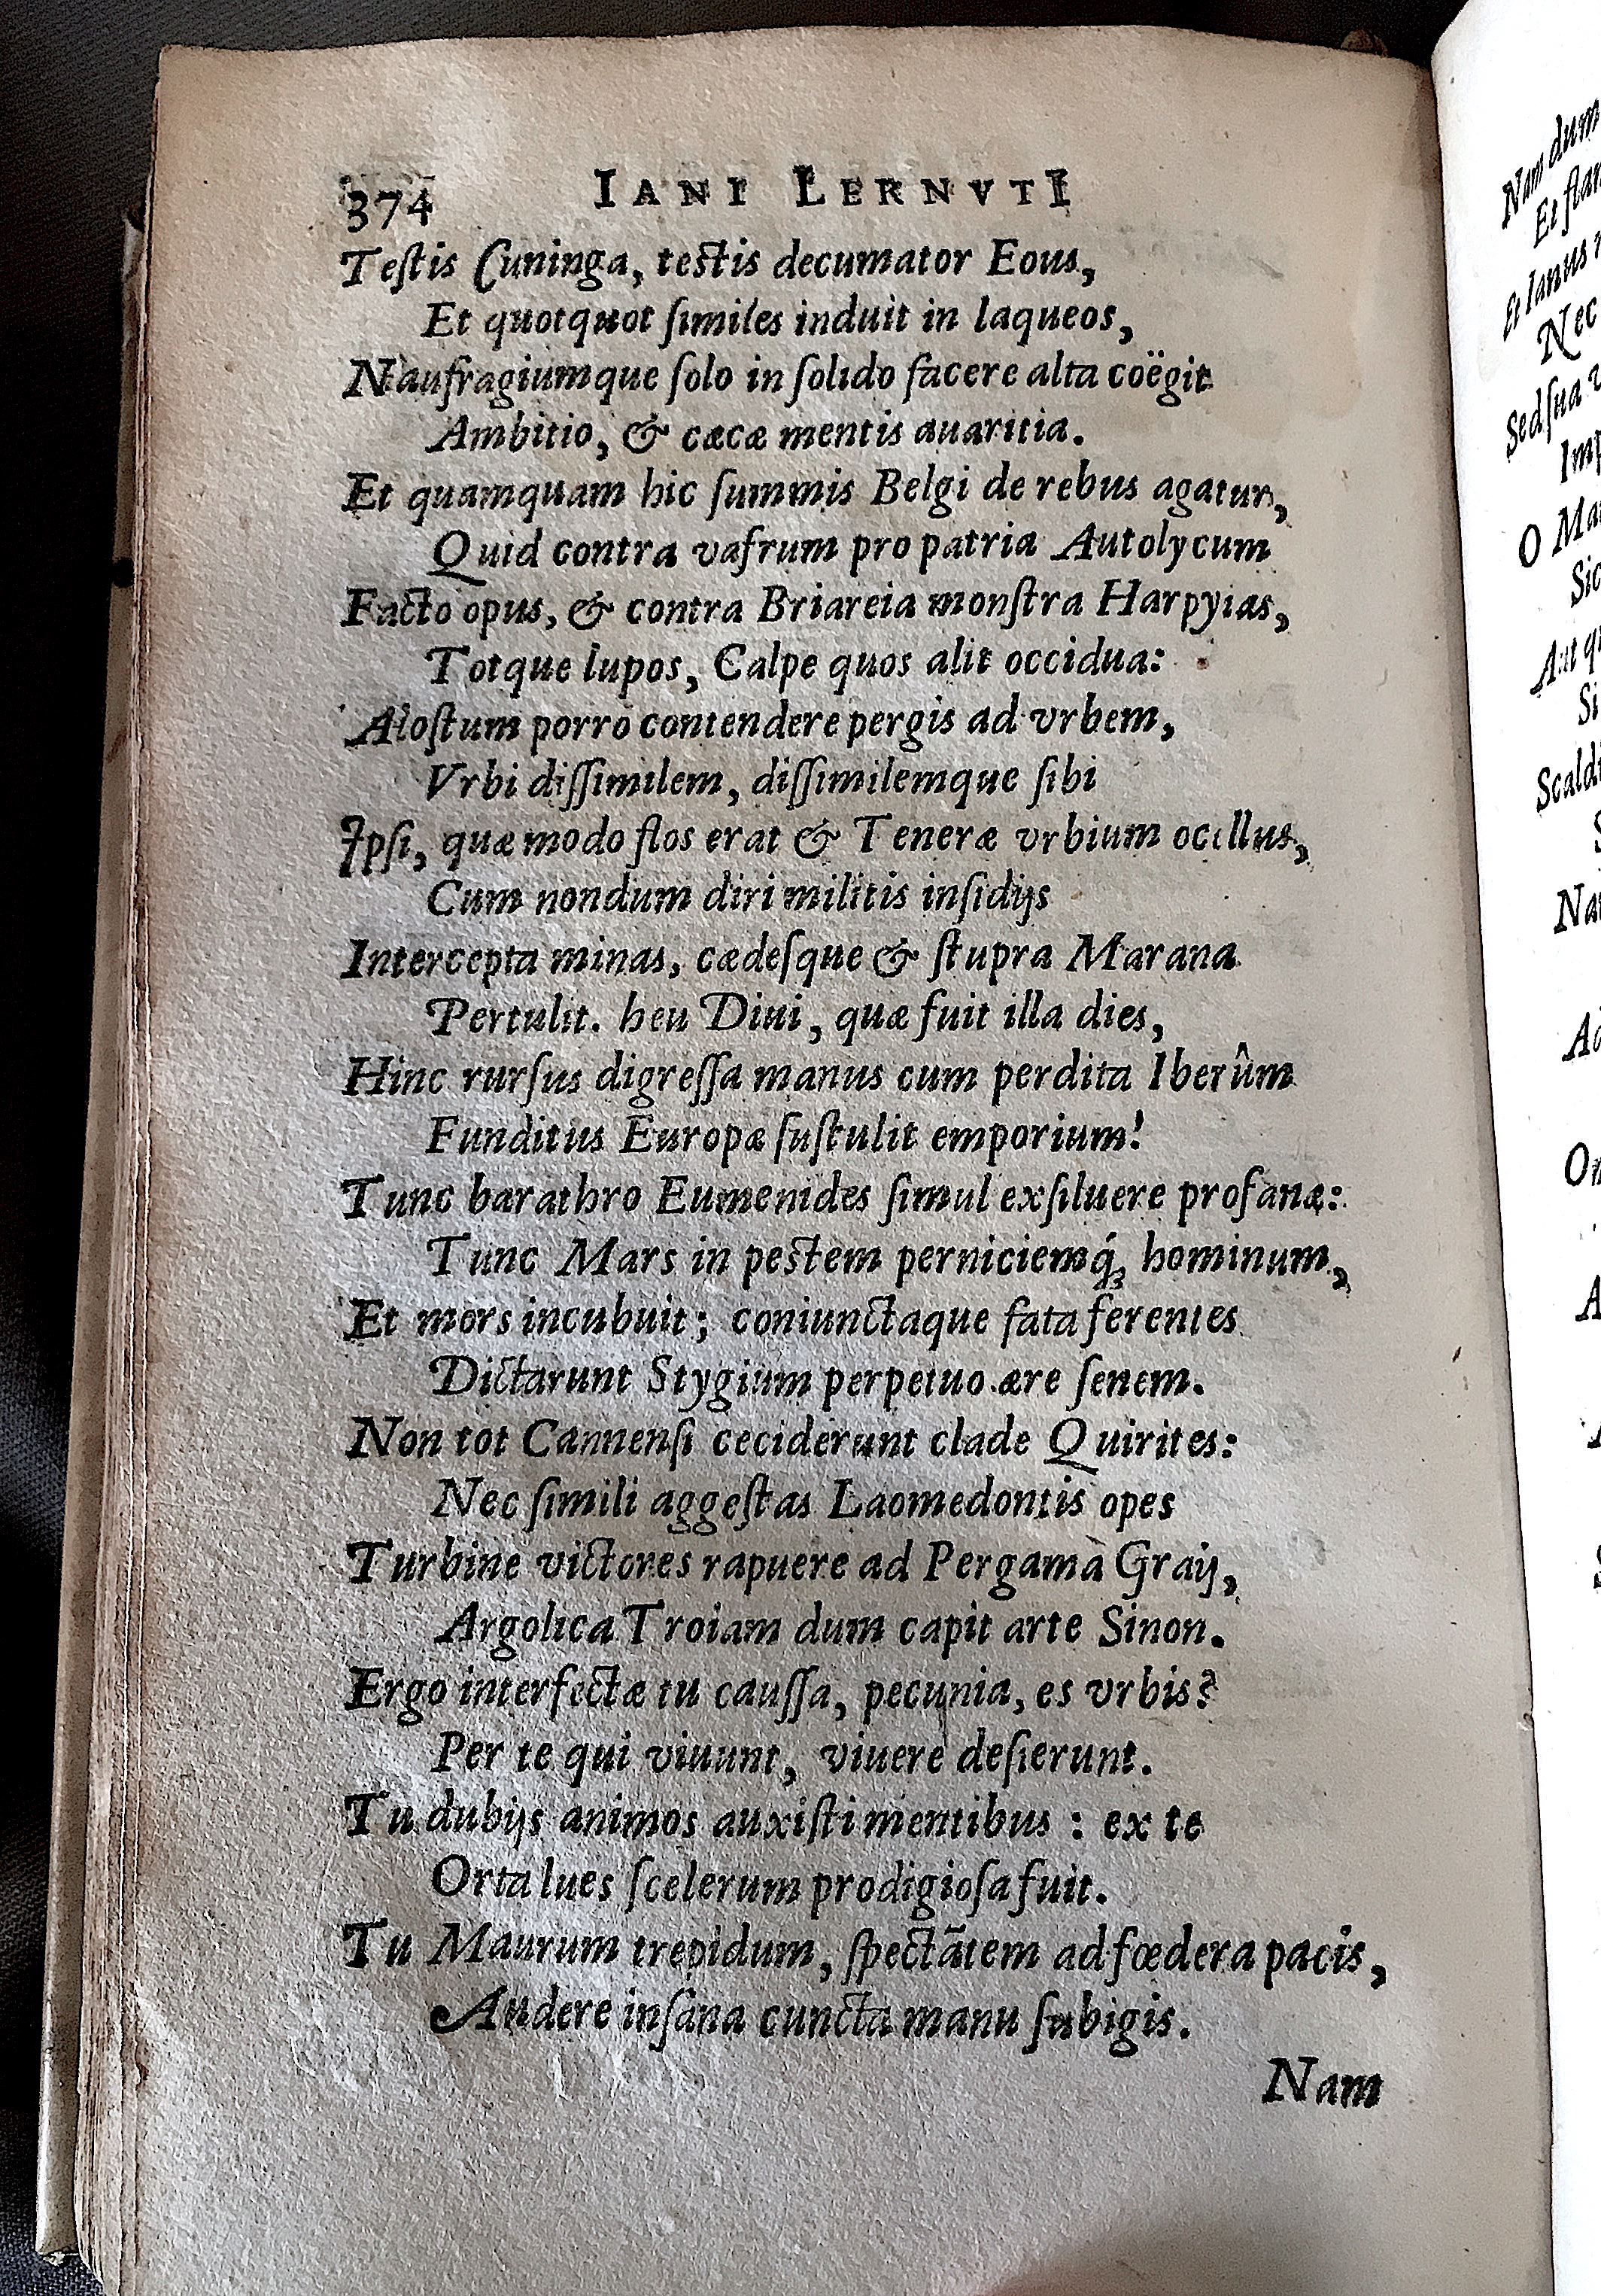 374 IANI LERNVTI
Teſtis Cuninga, teſtis decumator Eous,
Et quotquot ſimiles induit in laqueos,
Naufragiumque ſolo in ſolido facere alta coëgit
Ambitio, & cæcæ mentis auaritia.
Et quamquam hic ſummis Belgi de rebus agatur,
Quid contra vafrum pro patria Autolycum
Facto opus, & contra Briareia monſtra Harpyias,
Totque lupos, Calpe quos alit occidua:
Aloſtum porro contendere pergis ad vrbem,
Vrbi diſſimilem, diſſimilemque ſibi
Ipſi, quæ modo flos erat & Teneræ vrbium ocellus,
Cum nondum diri militis inſidijs
Intercepta minas, cædeſque & ſtupra Marana
Pertulit. heu Diui, quæ fuit illa dies,
Hinc rurſus digreſſa manus cum perdita Iberûm
Funditus Europæ ſuſtulit emporium!
Tunc barathro Eumenides ſimul exſiluere profanæ:
Tunc Mars in peſtem perniciemq́ꝫ hominum,
Et mors incubuit; coniunctaque fata ferentes
Dictarunt Stygium perpetuo ære ſenem.
Non tot Cannenſi ceciderunt clade Quirites:
Nec ſimili aggeſtas Laomedontis opes
Turbine victores rapuere ad Pergama Graij,
Argolica Troiam dum capit arte Sinon.
Ergo interfectæ tu cauſſa, pecunia, es vrbis?
Per te qui viuunt, viuere deſierunt.
Tu dubijs animos auxiſti mentibus : ex te
Orta lues ſcelerum prodigioſa fuit.
Tu Maurum trepidum, ſpectātem ad fœdera pacis,
Audere inſana cuncta manu ſubigis.
Nam
Nam dum
Et
Et Ianus
Nec
Sed ſua
O
Sic